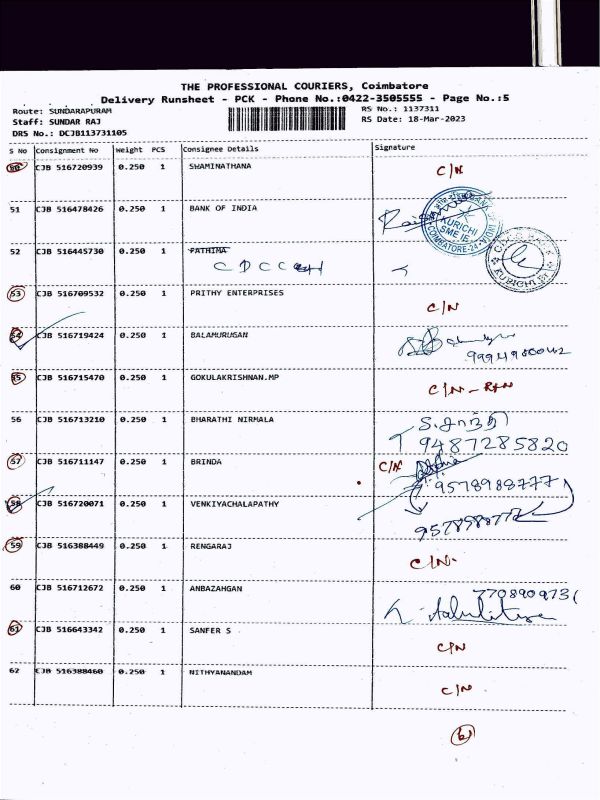 THE PROFESSIONAL COURIERS, Coimbatore
Delivery Runsheet - PCK - Phone No.:0422-3505555 - Page No.:5
Route: SUNDARAPURAM RS No.: 1137311
Staff: SUNDAR RAJ RS Date: 18-Mar-2023
DRS No.: DCJB113731105
S No Consignment No Weight PCS Consignee Details Signature
50 CJB 516720939 0.250 1 SWAMINATHANA C/N
51 CJB 516478426 0.250 1 BANK OF INDIA
KURICHI
SME IE
COIMBATORE-24
52 CJB 516445730 0.250 1 FATHIMA
KURICHI
53 CJB 516709532 0.250 1 PRITHY ENTERPRISES C/N
54 CJB 516719424 0.250 1 BALAMURUGAN
9994980042
55 CJB 516715470 0.250 1 GOKULAKRISHNAN.MP C/N - RTN
56 CJB 516713210 0.250 1 BHARATHI NIRMALA S.சாந்தி
9487285820
57 CJB 516711147 0.250 1 BRINDA C/N
9578988777
58 CJB 516720071 0.250 1 VENKIYACHALAPATHY
9578988777
59 CJB 516388449 0.250 1 RENGARAJ C/N
60 CJB 516712672 0.250 1 ANBAZAHGAN 7708909731
61 CJB 516643342 0.250 1 SANFER S C/N
62 CJB 516388460 0.250 1 NITHYANANDAM C/N